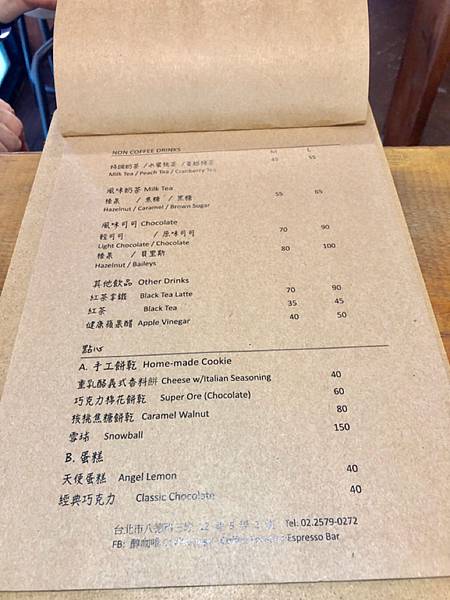 NON COFFEE DRINKS M L
特調奶茶 /水蜜桃茶 /蔓越莓茶 45 55
Milk Tea / Peach Tea / Cranberry Tea
風味奶茶 Milk Tea
榛果 / 焦糖 / 黑糖 55 65
Hazelnut / Caramel / Brown Sugar
風味可可 Chocolate
輕可可 / 原味可可 70 90
Light Chocolate / Chocolate
榛果 / 貝里斯 80 100
Hazelnut / Baileys
其他飲品 Other Drinks
紅茶拿鐵 Black Tea Latte 70 90
紅茶 Black Tea 35 45
健康蘋果醋 Apple Vinegar 40 50
點心
A. 手工餅乾 Home-made Cookie
重乳酪義式香料餅 Cheese w/Italian Seasoning 40
巧克力棉花餅乾 Super Ore (Chocolate) 60
核桃焦糖餅乾 Caramel Walnut 80
雪球 Snowball 150
B. 蛋糕
天使蛋糕 Angel Lemon 40
經典巧克力 Classic Chocolate 40
台北市八德路三段 12 巷 5 Tel: 02.2579-0272
FB: 醇咖啡 Espresso Bar